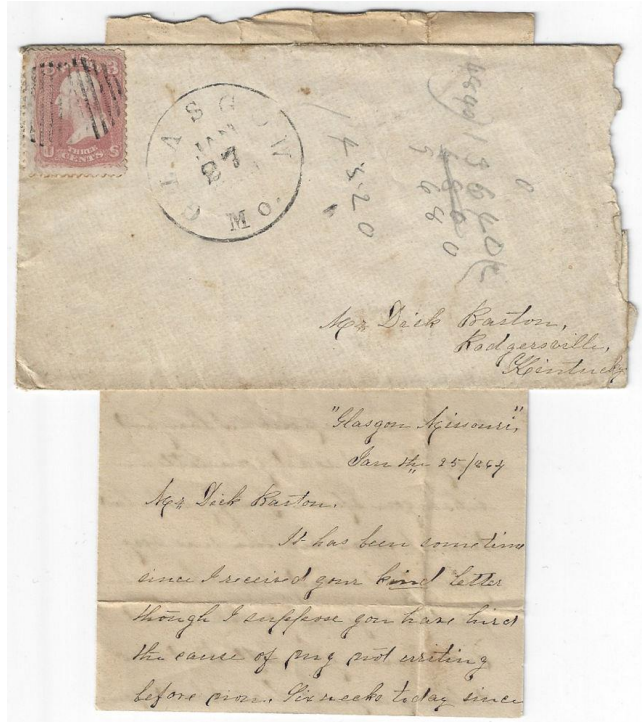 U S
THREE
CENTS
GLASGOW
JAN
27
MO.
14520
Mr Dick Barton,
Rodgersville,
Kentucky
"Glasgow Missouri,"
Jan the 25/864
Mr Dick Barton.
It has been sometime
since I received your kind letter
though I suppose you have hird
the cause of my not writing
before now. Six weeks today since